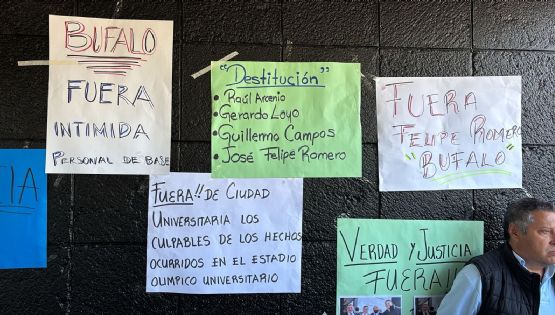 BUFALO
FUERA
INTIMIDA
PERSONAL DE BASE
"Destitución"
• Raúl Arcenio
• Gerardo Loyo
• Guillermo Campos
• José Felipe Romero
FUERA
FELIPE ROMERO
"BUFALO"
FUERA!! DE CIUDAD
UNIVERSITARIA LOS
CULPABLES DE LOS HECHOS
OCURRIDOS EN EL ESTADIO
OLIMPICO UNIVERSITARIO
VERDAD Y JUSTICIA
FUERA!!